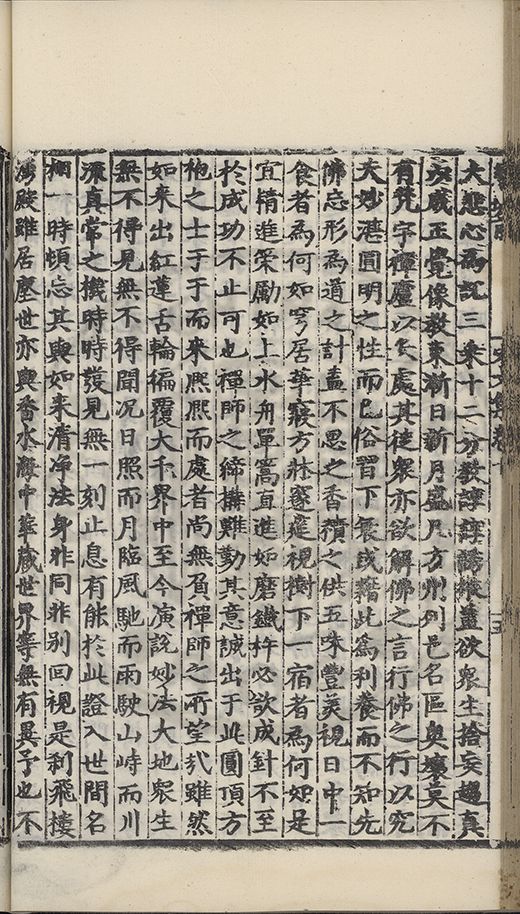 大悲心為說三乘十二分教諄諄誘掖蓋欲衆生捨妄趨真
咸正覺像教東漸日新月盛凡方州列邑名區奥壤莫不
有梵字禪廬以處其徒衆亦欲解佛之言行佛之行以究
夫妙湛圓明之性而已俗習下衰或藉此為利養而不知先
佛忘形為道之計盖不思之香積之供五味豐美視日中一
食者為何如穹居華寢方牀邃筵視樹下一宿者為何如是
宜精進策勵如上水舟單篙直進如磨鐵杵必欲成針不至
於成功不止可也禪師之締搆雖勤其意誠出于此圓頂方
袍之士于于而來熈熈而處者尚無負禪師之所望哉雖然
如來出紅蓮舌輪徧覆大千界中至今演說妙法大地衆生
無不得見無不得聞況日照而月臨風馳而雨駛山峙而川
流真常之機時時發見無一刻止息有能於此證入世間名
相一時頓忘其與如來清淨法身非同非别回視是刹飛樓
湧殿雖居塵世亦與香水海中華藏世界等無有異予也不